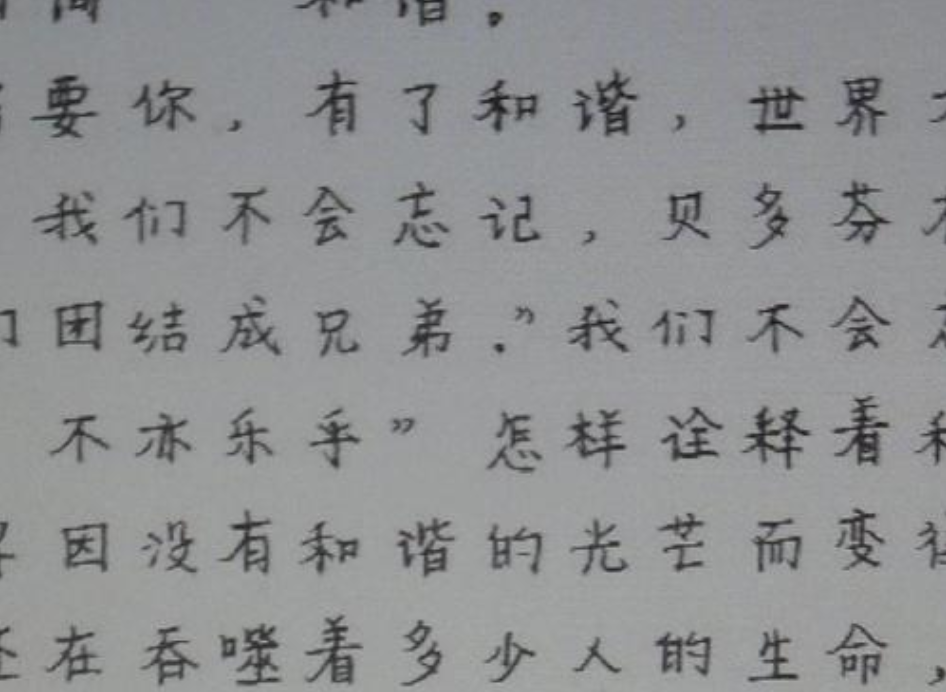 和谐。
要你，有了和谐，世界
我们不会忘记，贝多芬
们团结成兄弟。”我们不会
不亦乐乎”怎样诠释着和
因没有和谐的光芒而变
还在吞噬着多少人的生命，